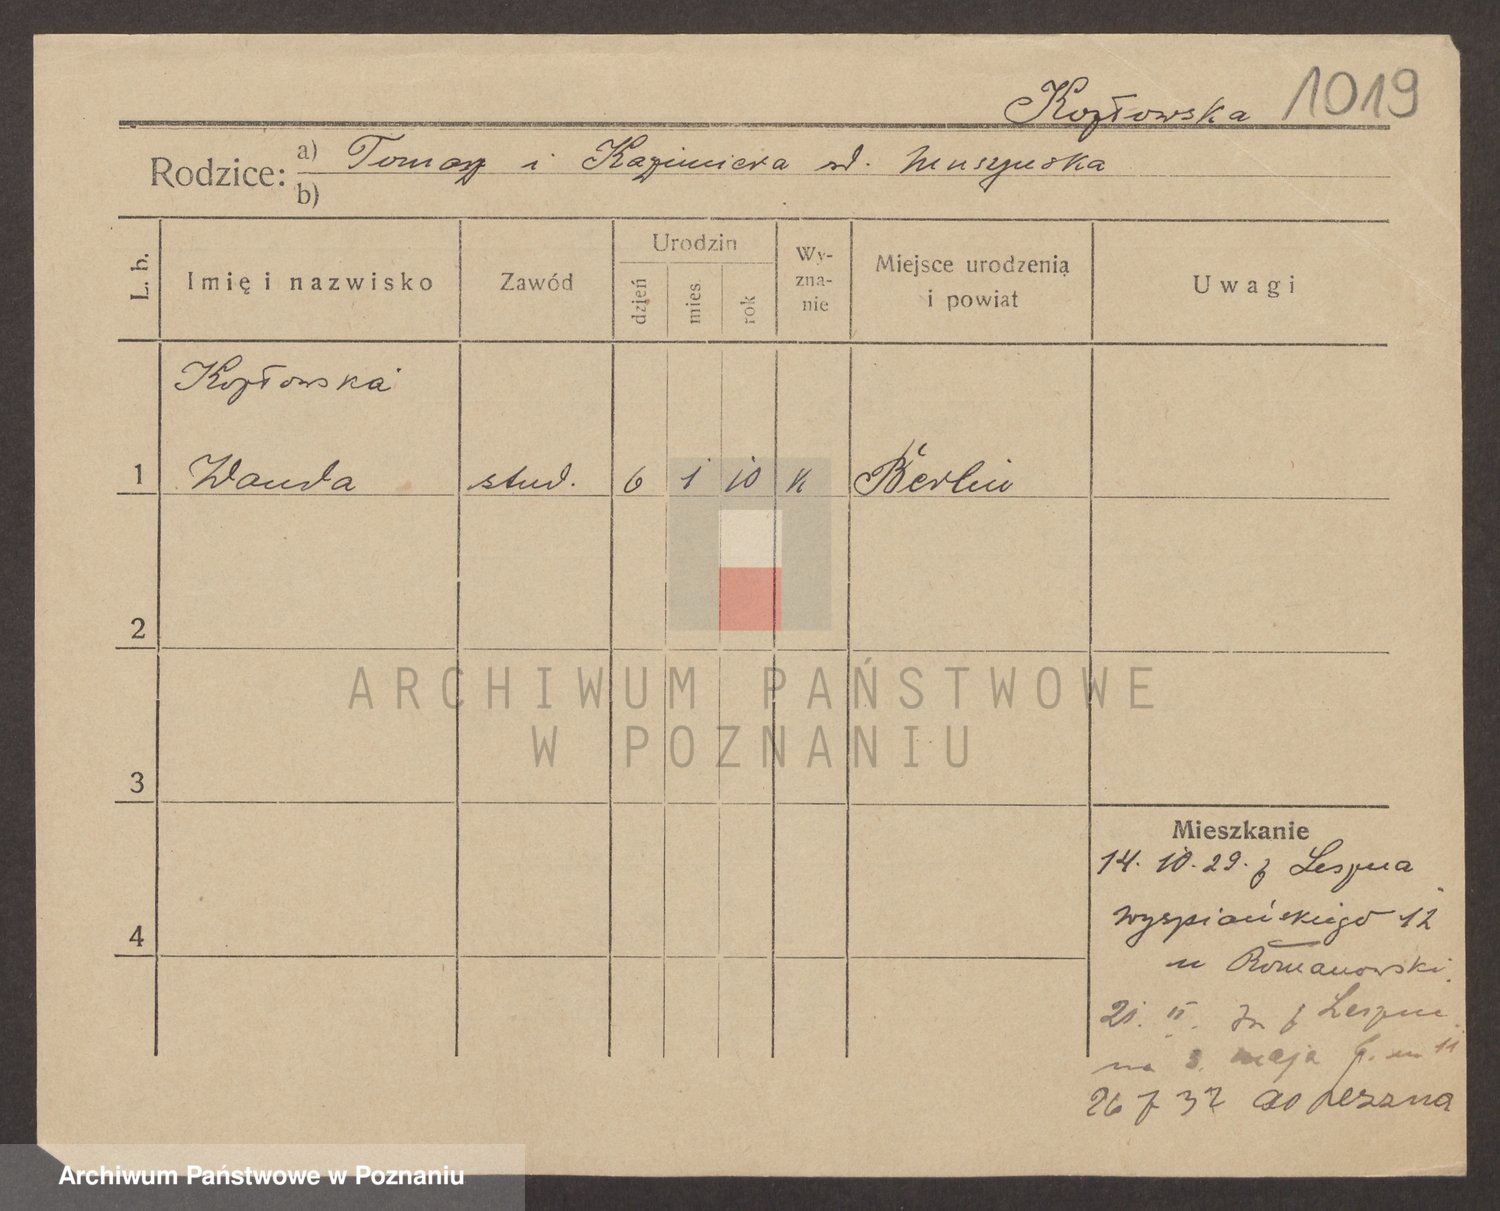 Kozłowska 1019
Rodzice: a) Tomasz i Kazimiera Muszyńska
b)
L. b. Imię i nazwisko Zawód Urodzin dzień mies. rok Wy-zna-nie Miejsce urodzenia i powiat Uwagi
Kozłowska
1 Wanda stud. 6 1 10 K Berlin
2
3
4
Mieszkanie
14. 10. 29. z Leszna
Wyspiańskiego 12
u Romanowski
21. II. z Leszna
na 3. maja
26 32 do Leszna
ARCHIWUM PAŃSTWOWE
W POZNANIU
Archiwum Państwowe w Poznaniu